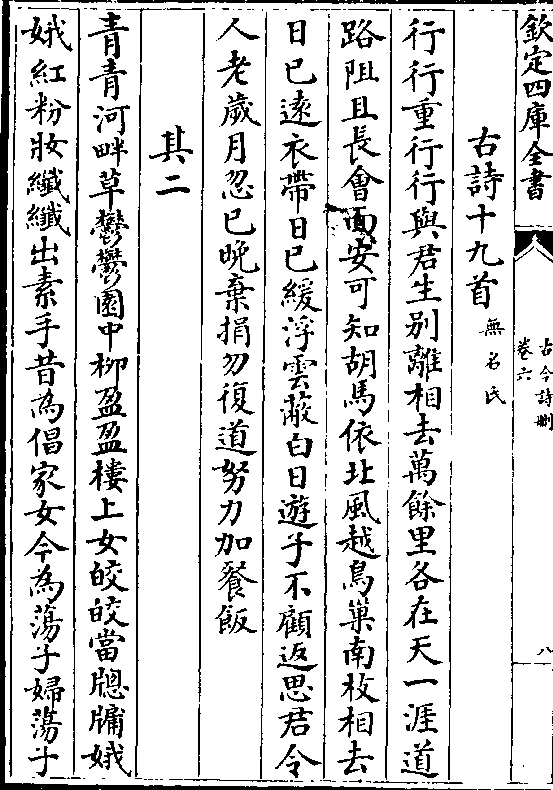 欽定四庫全書
古今詩刪
卷六
八
古詩十九首
無名氏
行行重行行與君生別離相去萬餘里各在天一涯道
路阻且長會面安可知胡馬依北風越鳥巢南枝相去
日已逺衣帶日已緩浮雲蔽白日遊子不顧返思君令
人老歲月忽已晚棄捐勿復道努力加餐飯
其二
青青河畔草鬱鬱園中柳盈盈樓上女皎皎當牕牖娥
娥紅粉妝纖纖出素手昔為倡家女今為蕩子婦蕩子